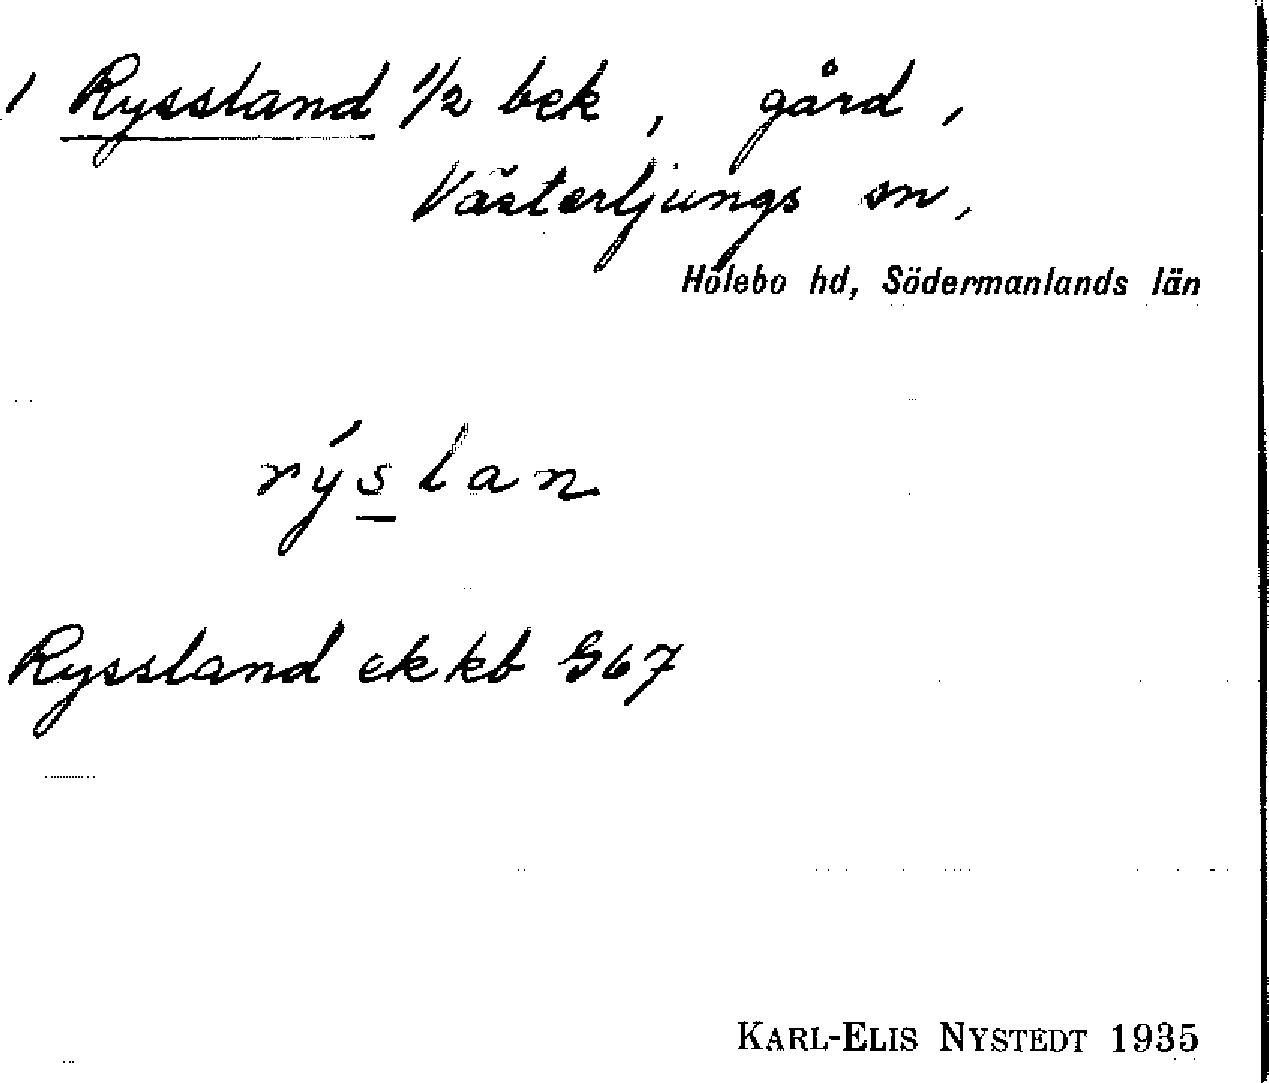 1 Ryssland 1/2 bek, gård,
Västerljungs sn,
Hölebo hd, Södermanlands län
rýslan
Ryssland ek kb G67
KARL-ELIS NYSTEDT 1935